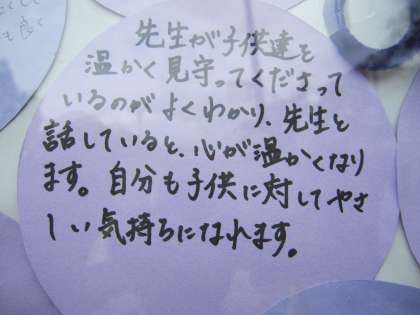 先生が子供達を
温かく見守ってくださって
いるのがよくわかり、先生と
話していると、心が温かくなり
ます。自分も子供に対してやさ
しい気持ちになれます。